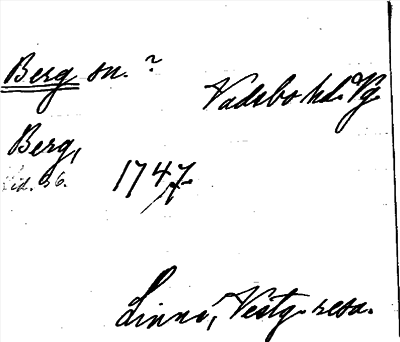 Berg sn. ?
Vadsbo hd. Vg.
Berg,
sid. 36.
1747
Linné, Vestg. resa.